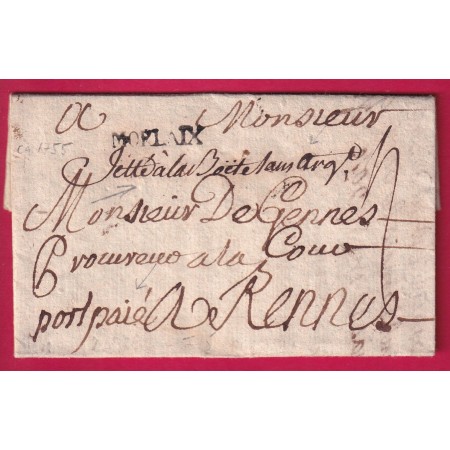 A Monsieur
MORLAIX
ca 1755
Jetté à la Boëte sans arg.t
Monsieur De Gennes
Procureur a la Cour
port paié A Rennes